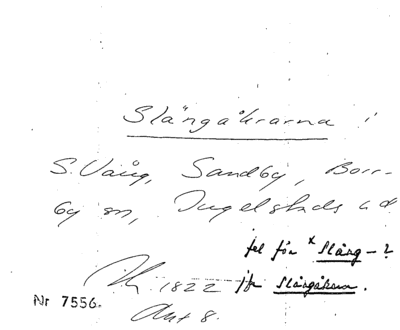 Slängåkrarna i
S. Vång, Sandby, Borr-
by sn, Ingelstads hd
fel för × Slång-?
1822 jfr Slångåkrar.
Nr 7556.
Akt 8.